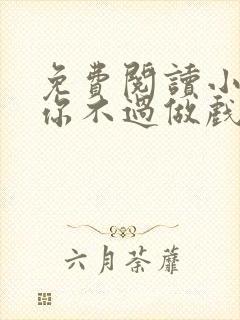 免費閱讀小
你不過做戲
六月荼蘼